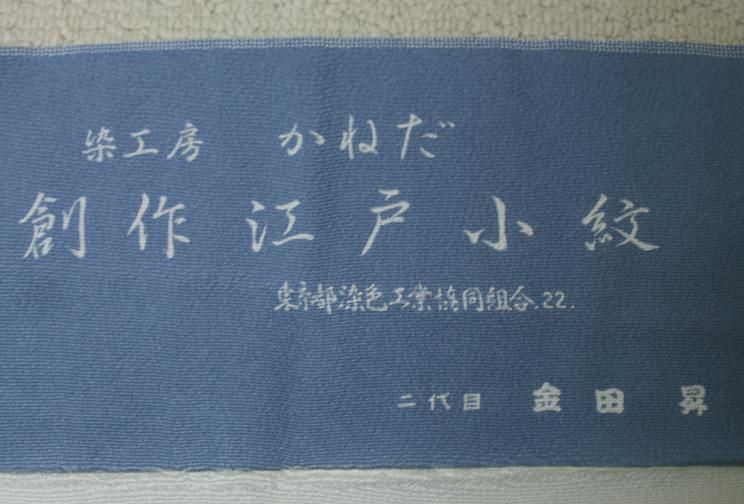 染工房 かねだ
創作江戸小紋
東京都染色工業協同組合.22.
二代目 金田 昇